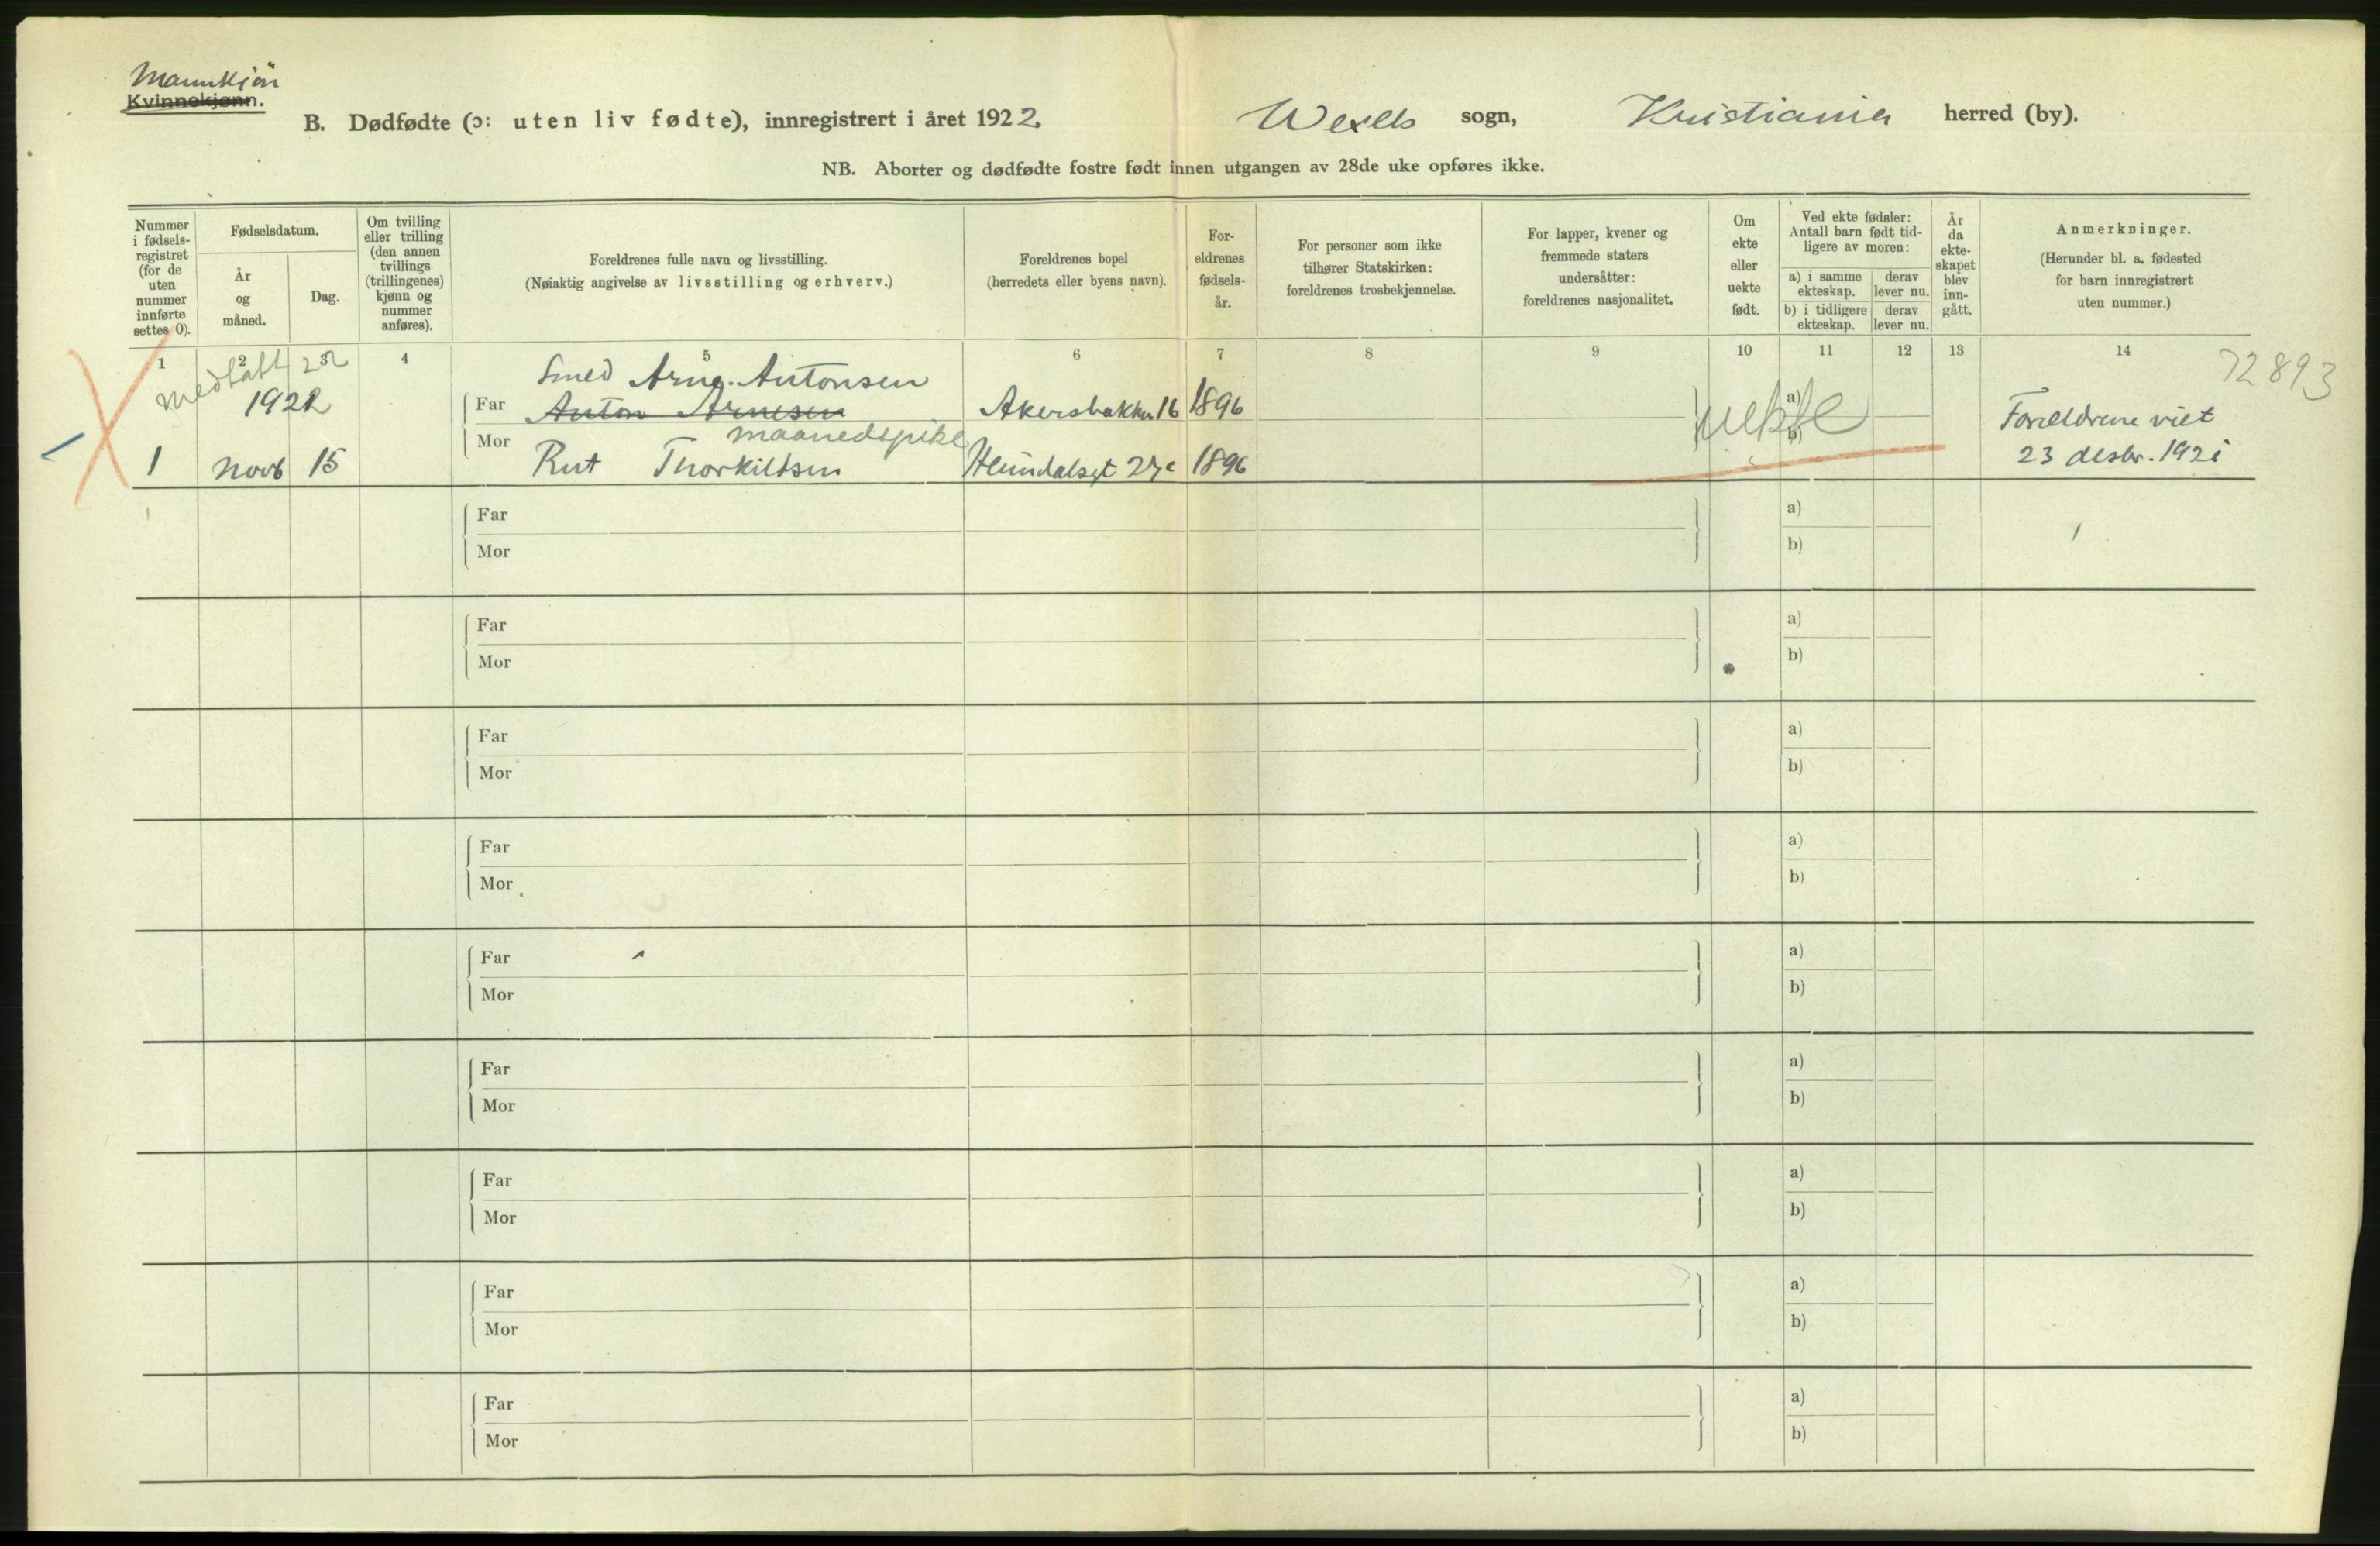 Mannkjön
Kvinnekjønn.
B. Dødfødte (ɔ: uten liv fødte), innregistrert i året 1922 Wexels sogn, Kristiania herred (by).
NB. Aborter og dødfødte fostre født innen utgangen av 28de uke opføres ikke.
Nummer i fødsels-registret (for de uten nummer innførte settes 0).
Fødselsdatum.
År og måned.
Dag.
Om tvilling eller trilling (den annen tvillings (trillingenes) kjønn og nummer anføres).
Foreldrenes fulle navn og livsstilling.
(Nøiaktig angivelse av livsstilling og erhverv.)
Foreldrenes bopel
(herredets eller byens navn).
For-eldrenes fødsels-år.
For personer som ikke tilhører Statskirken: foreldrenes trosbekjennelse.
For lapper, kvener og fremmede staters undersåtter: foreldrenes nasjonalitet.
Om ekte eller uekte født.
Ved ekte fødsler: Antall barn født tid-ligere av moren:
a) i samme ekteskap.
derav lever nu.
b) i tidligere ekteskap.
derav lever nu.
År da ekte-skapet blev inn-gått.
Anmerkninger.
(Herunder bl. a. fødested for barn innregistrert uten nummer.)
1 2 3 4 5 6 7 8 9 10 11 12 13 14
medtatt 22
72893
Smed Arne Antonsen
1922 Far Anton Arnesen Akersbakken 16 1896 uekte a) Foreldrene viet
Mor maanedspike b)
1 Novb 15 Rut Thorkildsen 1896 23 desbr. 1921
Far a)
Mor b)
Far a)
Mor b)
Far a)
Mor b)
Far a)
Mor b)
Far a)
Mor b)
Far a)
Mor b)
Far a)
Mor b)
Far a)
Mor b)
Far a)
Mor b)